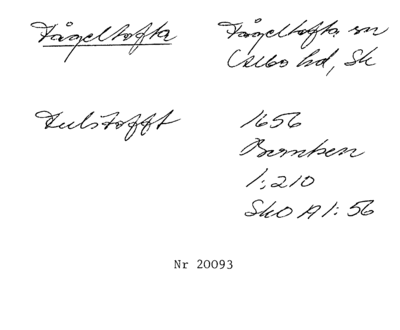 Fågeltofta
Fågeltofta sn
Albo hd, Sk
Fulstofft
1656
1:210
SkO A1:56
Nr 20093